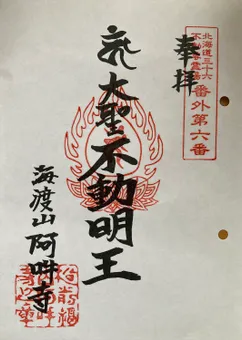 北海道三十六
不動尊霊場
番外第六番
奉拝
大聖不動明王
海渡山阿吽寺